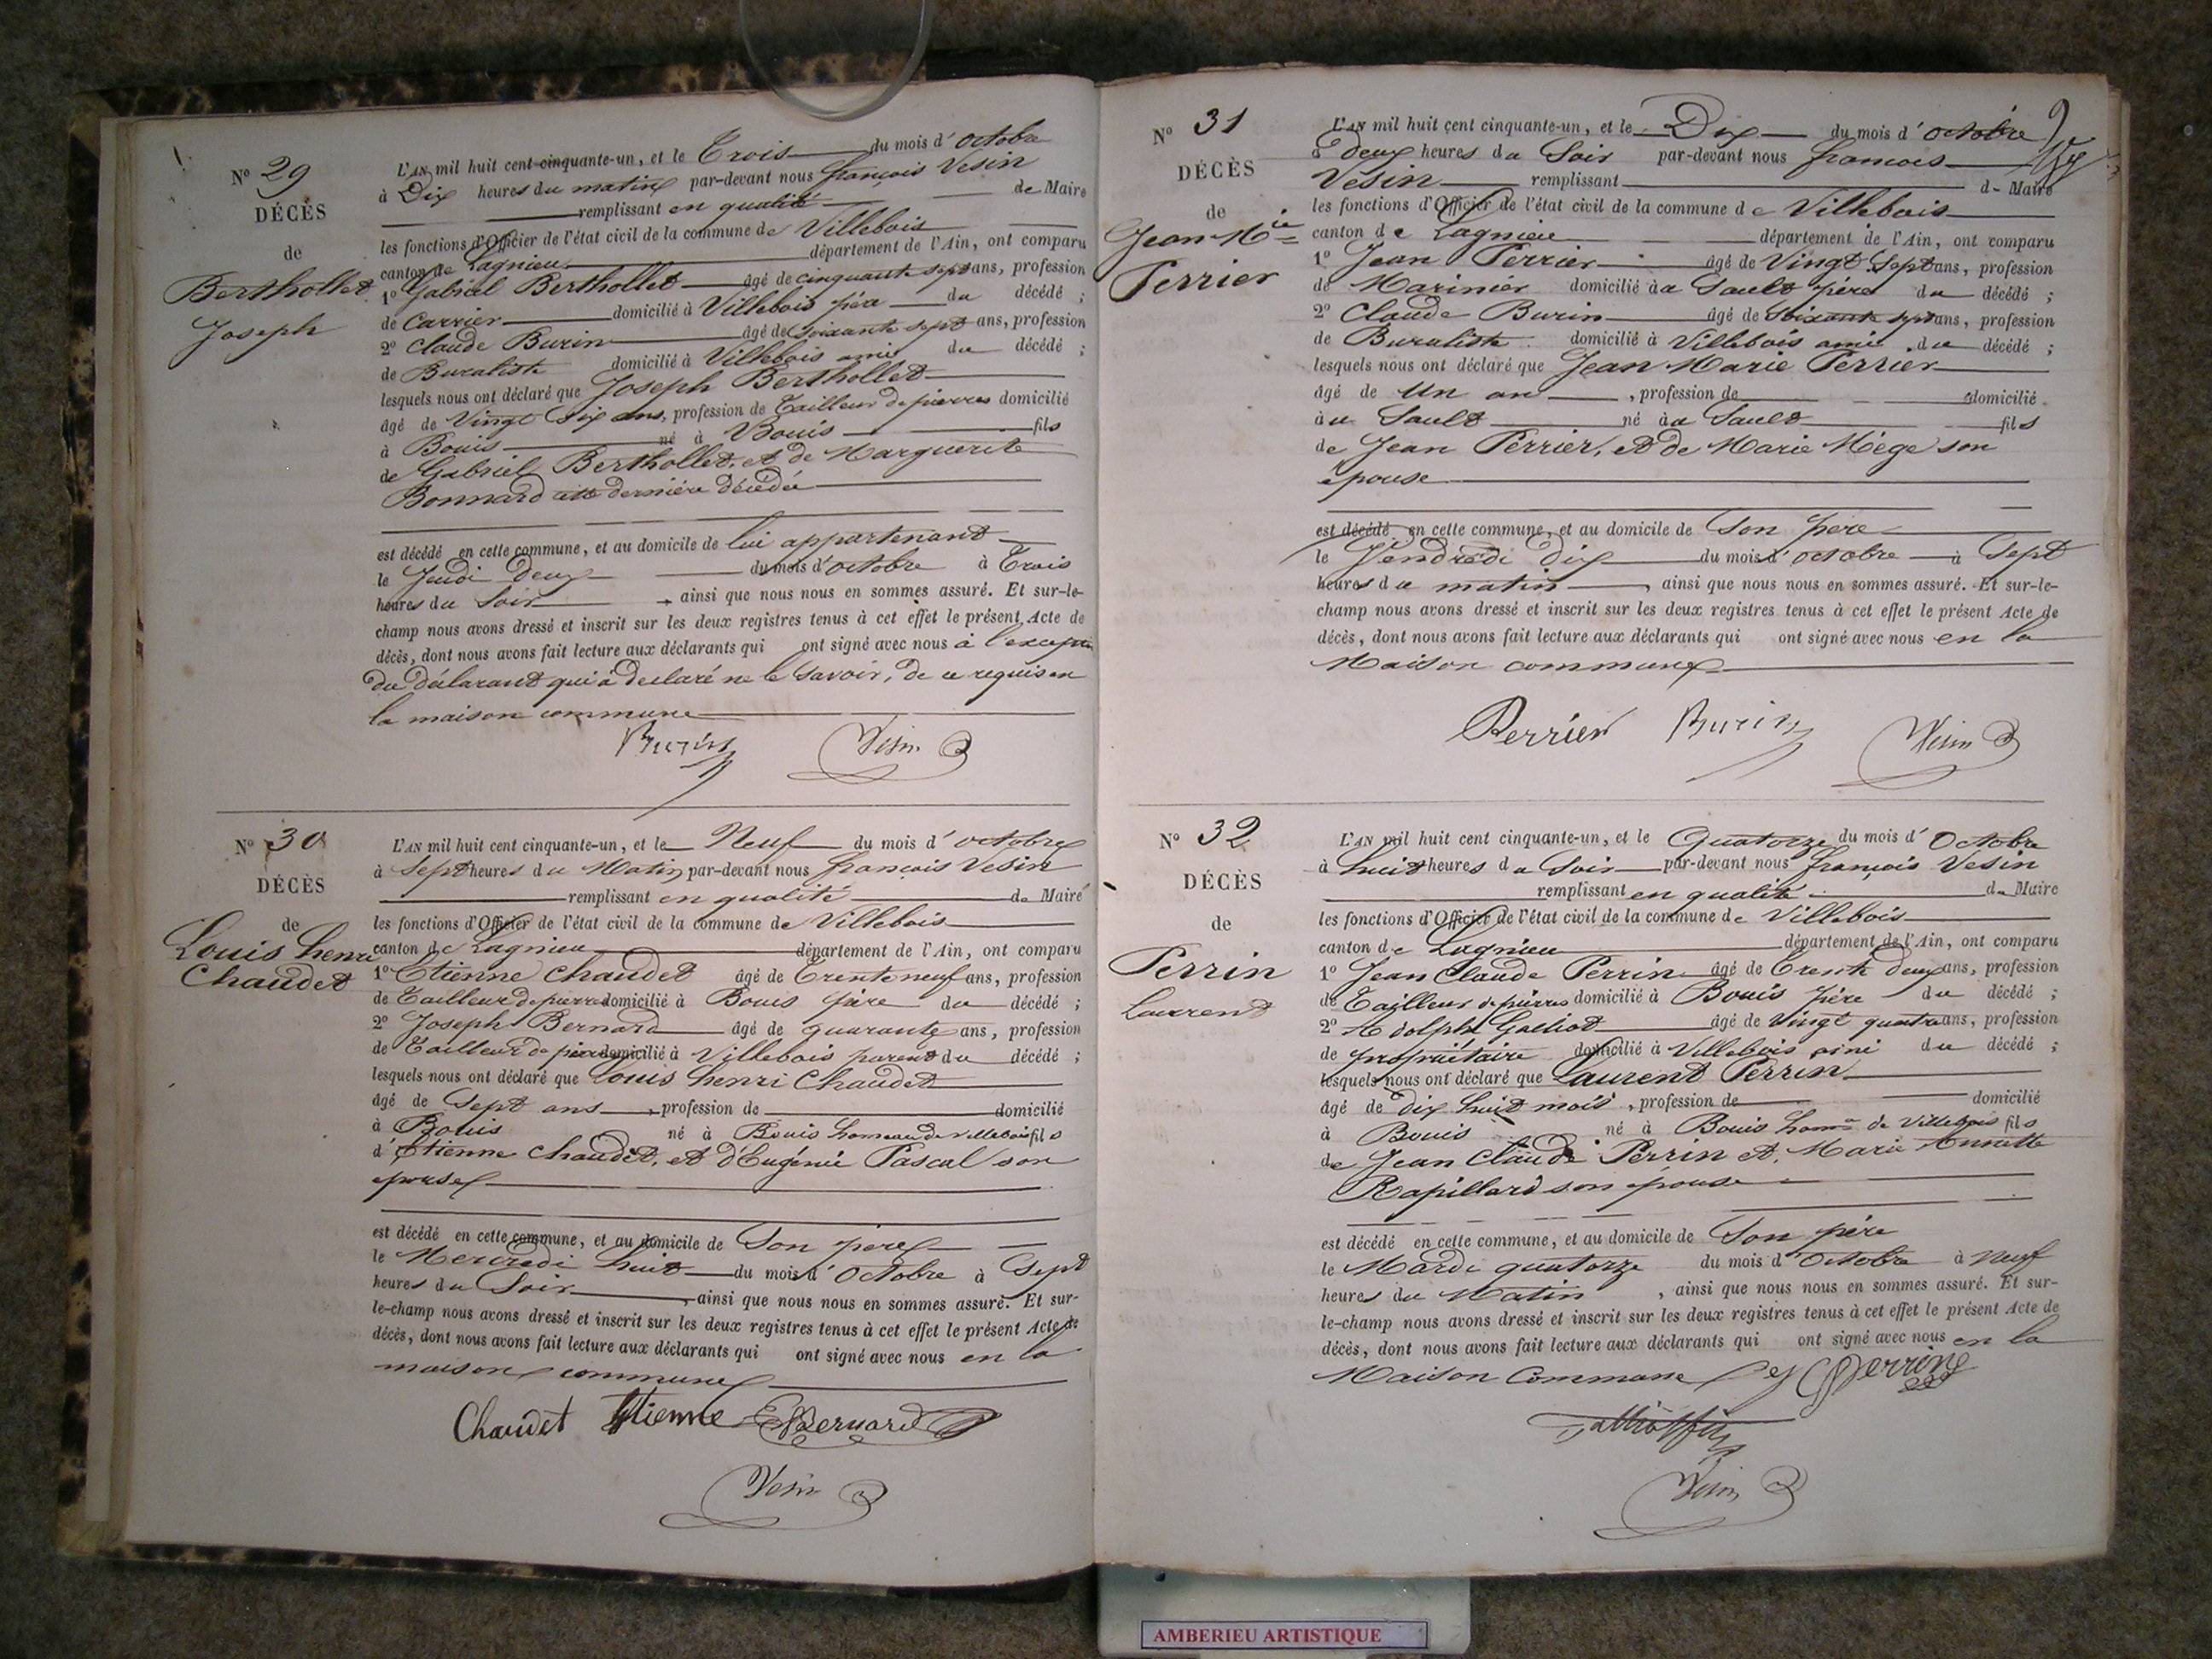 N° 29
DÉCÈS
de
Berthollet
Joseph
L'AN mil huit cent cinquante-un, et le Trois du mois d'octobre
à Dix heures du matin par-devant nous françois Vesin
remplissant en qualité de Maire
les fonctions d'Officier de l'état civil de la commune de Villebois
canton de Lagnieu département de l'Ain, ont comparu
1° Gabriel Berthollet âgé de cinquante sept ans, profession
de Carrier domicilié à Villebois père du décédé ;
2° Claude Burin âgé de soixante sept ans, profession
de Buraliste domicilié à Villebois ami du décédé ;
lesquels nous ont déclaré que Joseph Berthollet
âgé de Vingt Six ans, profession de Tailleur de pierres domicilié
à Bouis né à Bouis fils
de Gabriel Berthollet, et de Marguerite
Bonnard cette dernière décédée
est décédé en cette commune, et au domicile de lui appartenant
le Jeudi Deux du mois d'octobre à Trois
heures du Soir, ainsi que nous nous en sommes assuré. Et sur-le-
champ nous avons dressé et inscrit sur les deux registres tenus à cet effet le présent Acte de
décès, dont nous avons fait lecture aux déclarants qui ont signé avec nous à l'exception
du déclarant qui a déclaré ne le savoir, de ce requis en
la maison commune
Burin Vesin
N° 30
DÉCÈS
de
Louis henri
Chaudet
L'AN mil huit cent cinquante-un, et le Neuf du mois d'octobre
à Sept heures du Matin par-devant nous françois Vesin
remplissant en qualité de Maire
les fonctions d'Officier de l'état civil de la commune de Villebois
canton de Lagnieu département de l'Ain, ont comparu
1° Etienne Chaudet âgé de Trente neuf ans, profession
de Tailleur de pierres domicilié à Bouis père du décédé ;
2° Joseph Bernard âgé de quarante ans, profession
de Tailleur de pierres domicilié à Villebois parent du décédé ;
lesquels nous ont déclaré que Louis henri Chaudet
âgé de Sept ans, profession de domicilié
à Bouis né à Bouis hameau de Villebois fils
d'Etienne Chaudet, et d'Eugénie Pascal son
épouse
est décédé en cette commune, et au domicile de Son père
le Mercredi huit du mois d'Octobre à Sept
heures du Soir, ainsi que nous nous en sommes assuré. Et sur-
le-champ nous avons dressé et inscrit sur les deux registres tenus à cet effet le présent Acte de
décès, dont nous avons fait lecture aux déclarants qui ont signé avec nous en la
maison commune
Chaudet Etienne Bernard
Vesin
N° 31
DÉCÈS
de
Jean Mie
Perrier
L'AN mil huit cent cinquante-un, et le Dix du mois d'octobre
à deux heures du Soir par-devant nous françois
Vesin remplissant de Maire
les fonctions d'Officier de l'état civil de la commune de Villebois
canton de Lagnieu département de l'Ain, ont comparu
1° Jean Perrier âgé de Vingt Sept ans, profession
de Marinier domicilié au Sault père du décédé ;
2° Claude Burin âgé de Soixante sept ans, profession
de Buraliste domicilié à Villebois ami du décédé ;
lesquels nous ont déclaré que Jean Marie Perrier
âgé de Un an, profession de domicilié
au Sault né au Sault fils
de Jean Perrier, et de Marie Mège son
épouse
est décédé en cette commune, et au domicile de Son père
le Vendredi Dix du mois d'octobre à Sept
heures du matin, ainsi que nous nous en sommes assuré. Et sur-le-
champ nous avons dressé et inscrit sur les deux registres tenus à cet effet le présent Acte de
décès, dont nous avons fait lecture aux déclarants qui ont signé avec nous en la
Maison commune
Perrier Burin Vesin
N° 32
DÉCÈS
de
Perrin
Laurent
L'AN mil huit cent cinquante-un, et le Quatorze du mois d'Octobre
à huit heures du Soir par-devant nous françois Vesin
remplissant en qualité de Maire
les fonctions d'Officier de l'état civil de la commune de Villebois
canton de Lagnieu département de l'Ain, ont comparu
1° Jean Claude Perrin âgé de Trente deux ans, profession
de Tailleur de pierres domicilié à Bouis père du décédé ;
2° Adolphe Galliot âgé de Vingt quatre ans, profession
de propriétaire domicilié à Villebois ami du décédé ;
lesquels nous ont déclaré que Laurent Perrin
âgé de dix huit mois, profession de domicilié
à Bouis né à Bouis ham de Villebois fils
de Jean Claude Perrin et, Marie Annette
Rapillard son épouse
est décédé en cette commune, et au domicile de Son père
le Mardi quatorze du mois d'Octobre à neuf
heures du Matin, ainsi que nous nous en sommes assuré. Et sur-
le-champ nous avons dressé et inscrit sur les deux registres tenus à cet effet le présent Acte de
décès, dont nous avons fait lecture aux déclarants qui ont signé avec nous en la
Maison Commune Perrin
Vesin
AMBERIEU ARTISTIQUE